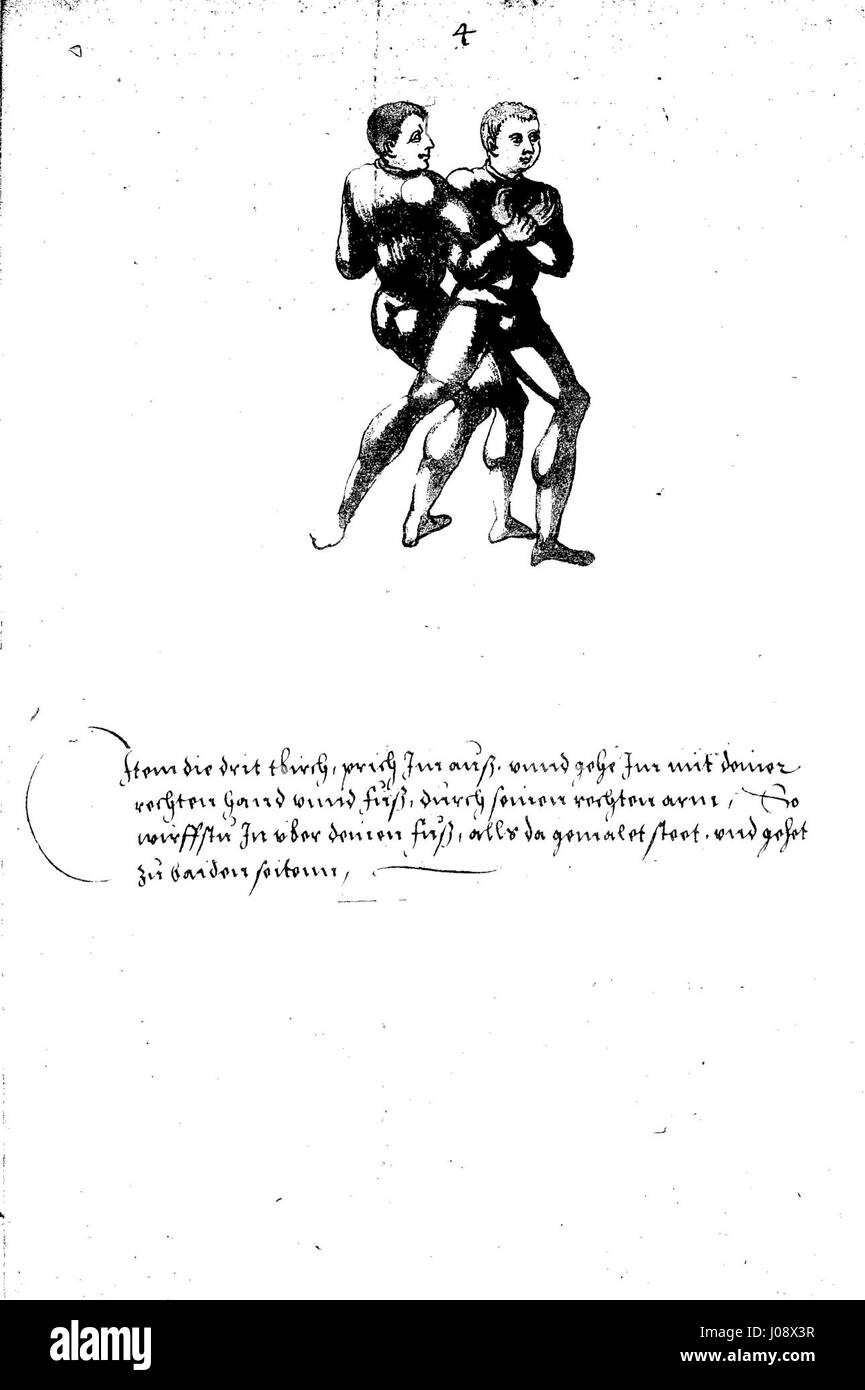 4
Item die drit twirch, prich Im auß. vnnd gehe Im mit deiner
rechten hand vnnd fuß, durch seinen rechten arm, So
wirffstu In vber deinen fuß, alls da gemalet steet. vnd gehet
zu baiden seitenn,
alamy
Image ID: J08X3R
www.alamy.com